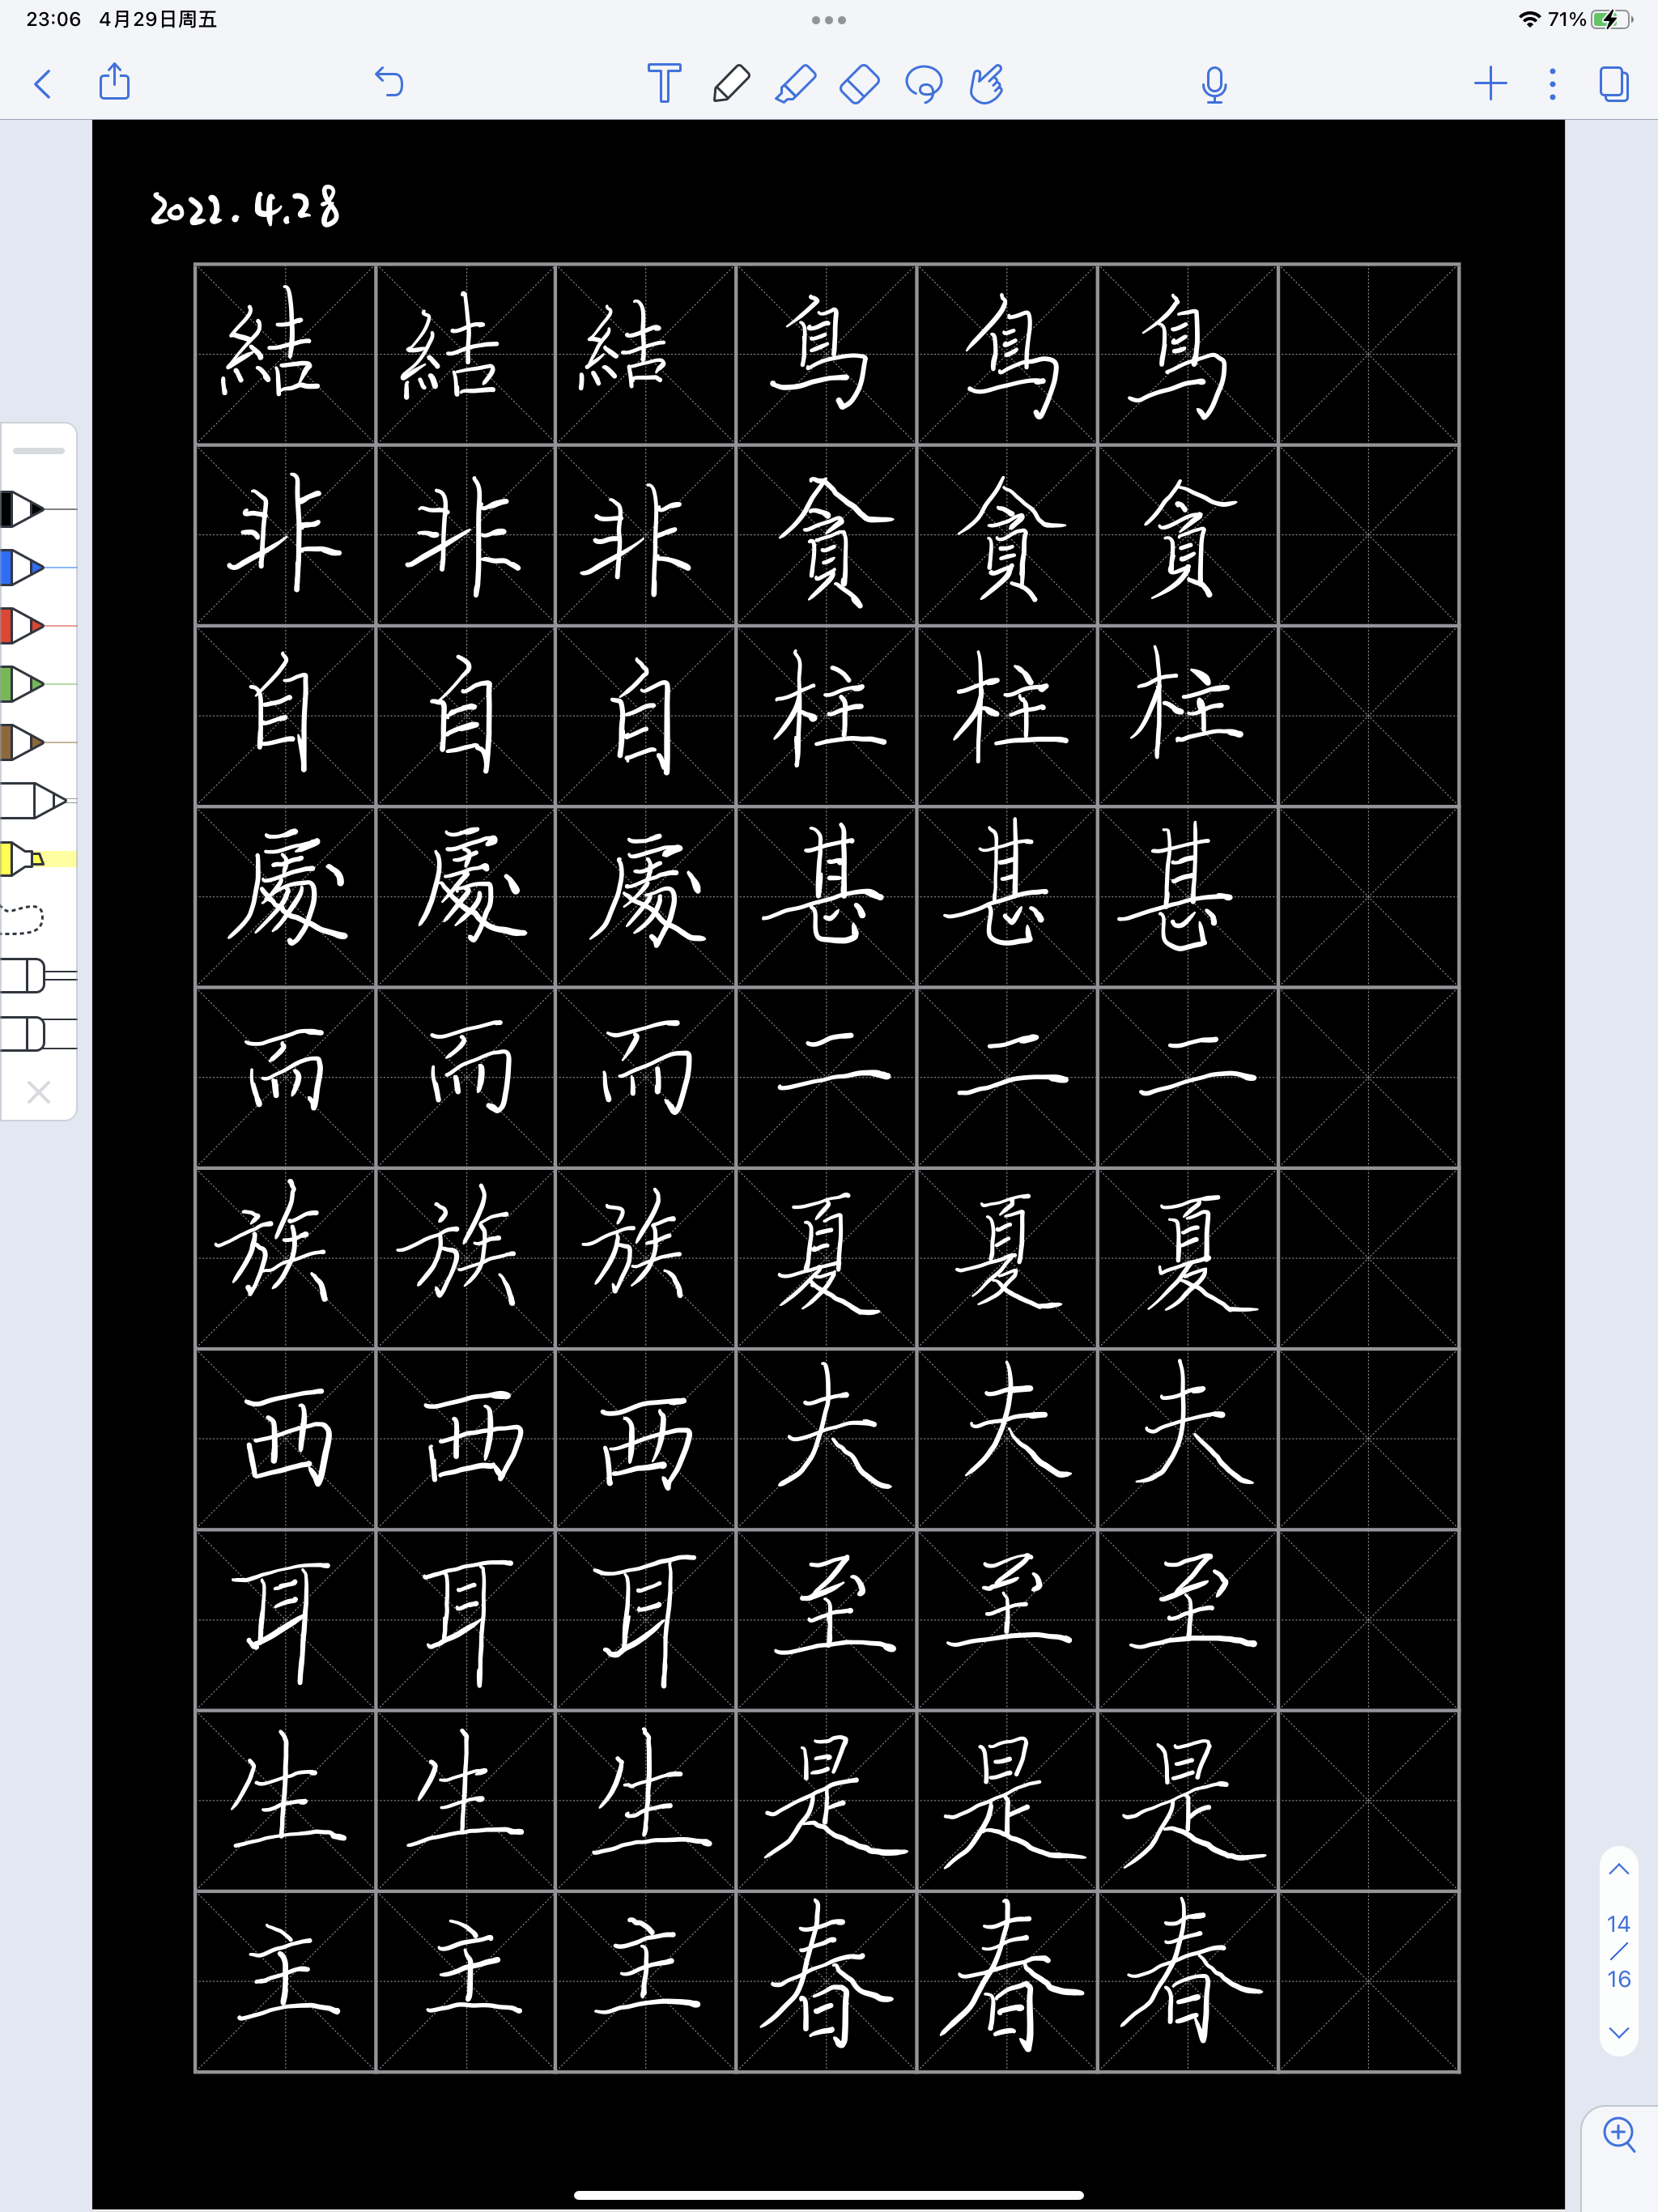 23:06 4月29日周五 71%
2022.4.28
結 結 結 鳥 鳥 鳥
非 非 非 貪 貪 貪
自 自 自 柱 柱 柱
處 處 處 甚 甚 甚
而 而 而 二 二 二
族 族 族 夏 夏 夏
西 西 西 夫 夫 夫
耳 耳 耳 至 至 至
生 生 生 是 是 是
主 主 主 春 春 春
14
/
16